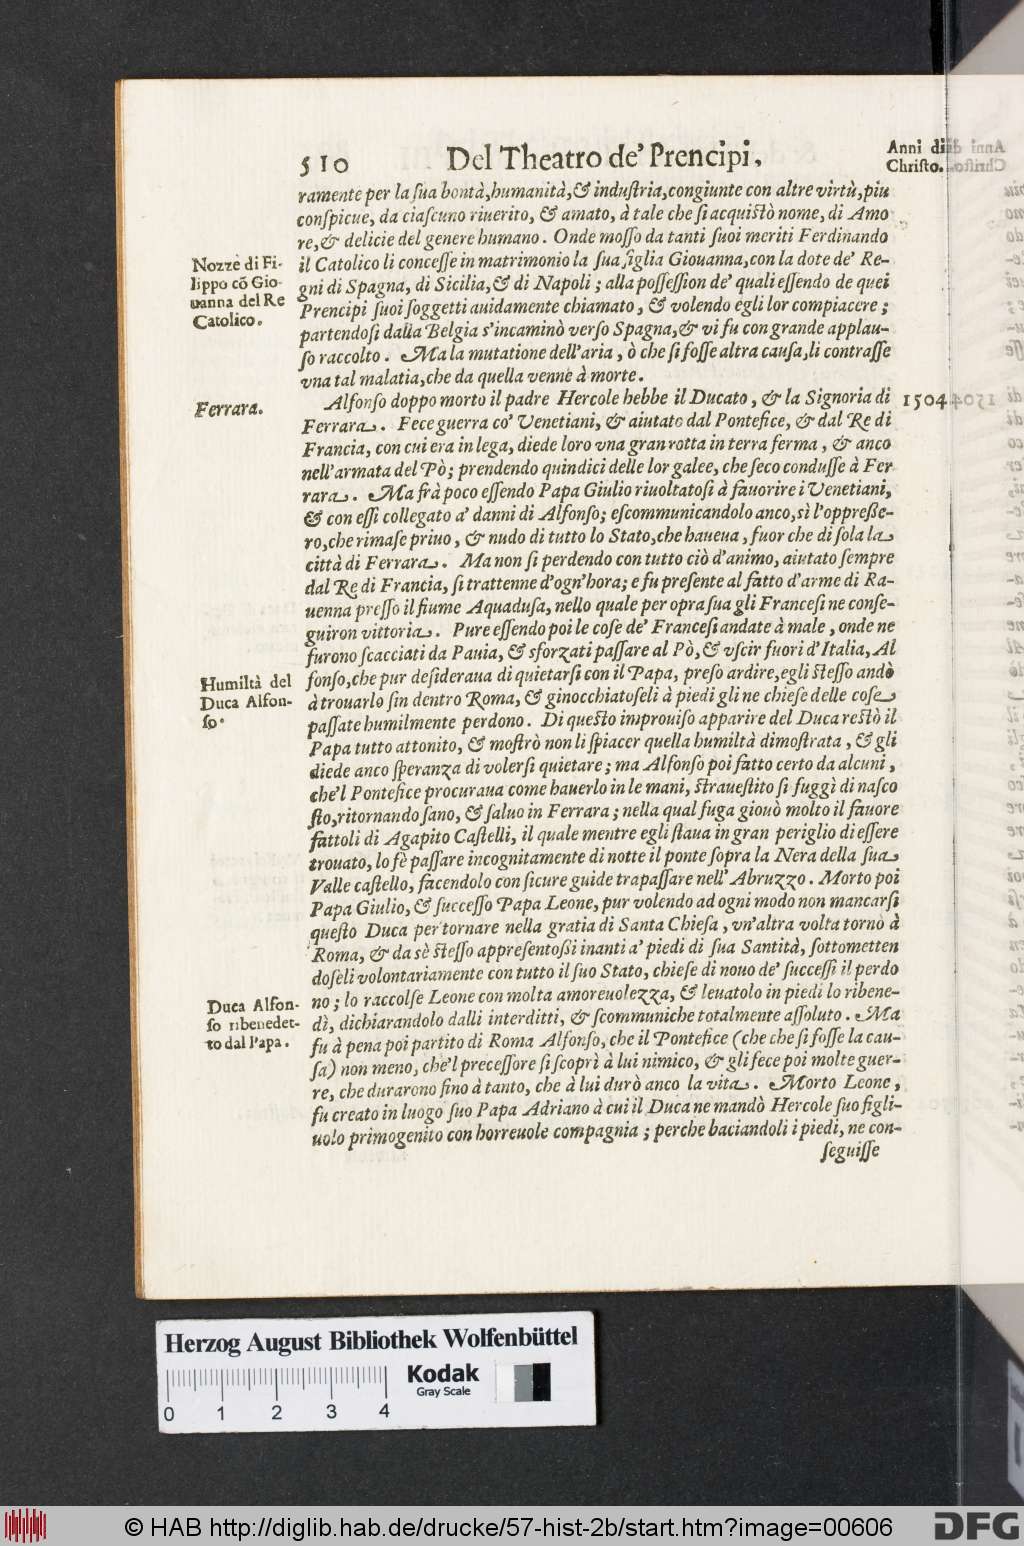 510 Del Theatro de' Prencipi,
Anni di
Christo.
ramente per la sua bontà, humanità, & industria, congiunte con altre virtù, piu
conspicue, da ciascuno riuerito, & amato, à tale che si acquistò nome, di Amo
re, & delicie del genere humano. Onde mosso da tanti suoi meriti Ferdinando
il Catolico li concesse in matrimonio la sua figlia Giouanna, con la dote de' Re-
gni di Spagna, di Sicilia, & di Napoli; alla possession de' quali essendo de quei
Prencipi suoi soggetti auidamente chiamato, & volendo egli lor compiacere;
partendosi dalla Belgia s'incaminò verso Spagna, & vi fu con grande applau-
so raccolto. Ma la mutatione dell'aria, ò che si fosse altra causa, li contrasse
vna tal malatia, che da quella venne à morte.
Nozze di Fi-
lippo cõ Gio-
uanna del Re
Catolico.
Ferrara.
1504
Alfonso doppo morto il padre Hercole hebbe il Ducato, & la Signoria di
Ferrara. Fece guerra co' Venetiani, & aiutato dal Pontefice, & dal Re di
Francia, con cui era in lega, diede loro vna gran rotta in terra ferma, & anco
nell'armata del Pò; prendendo quindici delle lor galee, che seco condusse à Fer
rara. Ma frà poco essendo Papa Giulio riuoltatosi à fauorire i Venetiani,
& con essi collegato a' danni di Alfonso; escommunicandolo anco, sì l'oppresse-
ro, che rimase priuo, & nudo di tutto lo Stato, che haueua, fuor che di sola la
città di Ferrara. Ma non si perdendo con tutto ciò d'animo, aiutato sempre
dal Re di Francia, si trattenne d'ogn'hora; e fu presente al fatto d'arme di Ra-
uenna presso il fiume Aquadusa, nello quale per opra sua gli Francesi ne conse-
guiron vittoria. Pure essendo poi le cose de' Francesi andate à male, onde ne
furono scacciati da Pauia, & sforzati passare al Pò, & vscir fuori d'Italia, Al
fonso, che pur desideraua di quietarsi con il Papa, preso ardire, egli stesso andò
à trouarlo sin dentro Roma, & ginocchiatoseli à piedi gli ne chiese delle cose
passate humilmente perdono. Di questo improuiso apparire del Duca restò il
Papa tutto attonito, & mostrò non li spiacer quella humiltà dimostrata, & gli
diede anco speranza di volersi quietare; ma Alfonso poi fatto certo da alcuni,
che'l Pontefice procuraua come hauerlo in le mani, strauestito si fuggì di nasco
sto, ritornando sano, & saluo in Ferrara; nella qual fuga giouò molto il fauore
fattoli di Agapito Castelli, il quale mentre egli staua in gran periglio di essere
trouato, lo fè passare incognitamente di notte il ponte sopra la Nera della sua
Valle castello, facendolo con sicure guide trapassare nell'Abruzzo. Morto poi
Papa Giulio, & successo Papa Leone, pur volendo ad ogni modo non mancarsi
questo Duca per tornare nella gratia di Santa Chiesa, vn'altra volta tornò à
Roma, & da sè stesso appresentossi inanti a' piedi di sua Santità, sottometten
doseli volontariamente con tutto il suo Stato, chiese di nouo de' successi il perdo
no; lo raccolse Leone con molta amoreuolezza, & leuatolo in piedi lo ribene-
dì, dichiarandolo dalli interditti, & scommuniche totalmente assoluto. Ma
fu à pena poi partito di Roma Alfonso, che il Pontefice (che che si fosse la cau-
sa) non meno, che'l precessore si scoprì à lui nimico, & gli fece poi molte guer-
re, che durarono fino à tanto, che à lui durò anco la vita. Morto Leone,
fu creato in luogo suo Papa Adriano à cui il Duca ne mandò Hercole suo figli-
uolo primogenito con horreuole compagnia; perche baciandoli i piedi, ne con-
seguisse
Humiltà del
Duca Alfon-
so.
Duca Alfon-
so ribenedet-
to dal Papa.
Herzog August Bibliothek Wolfenbüttel
Kodak
Gray Scale
0 1 2 3 4
© HAB http://diglib.hab.de/drucke/57-hist-2b/start.htm?image=00606
DFG